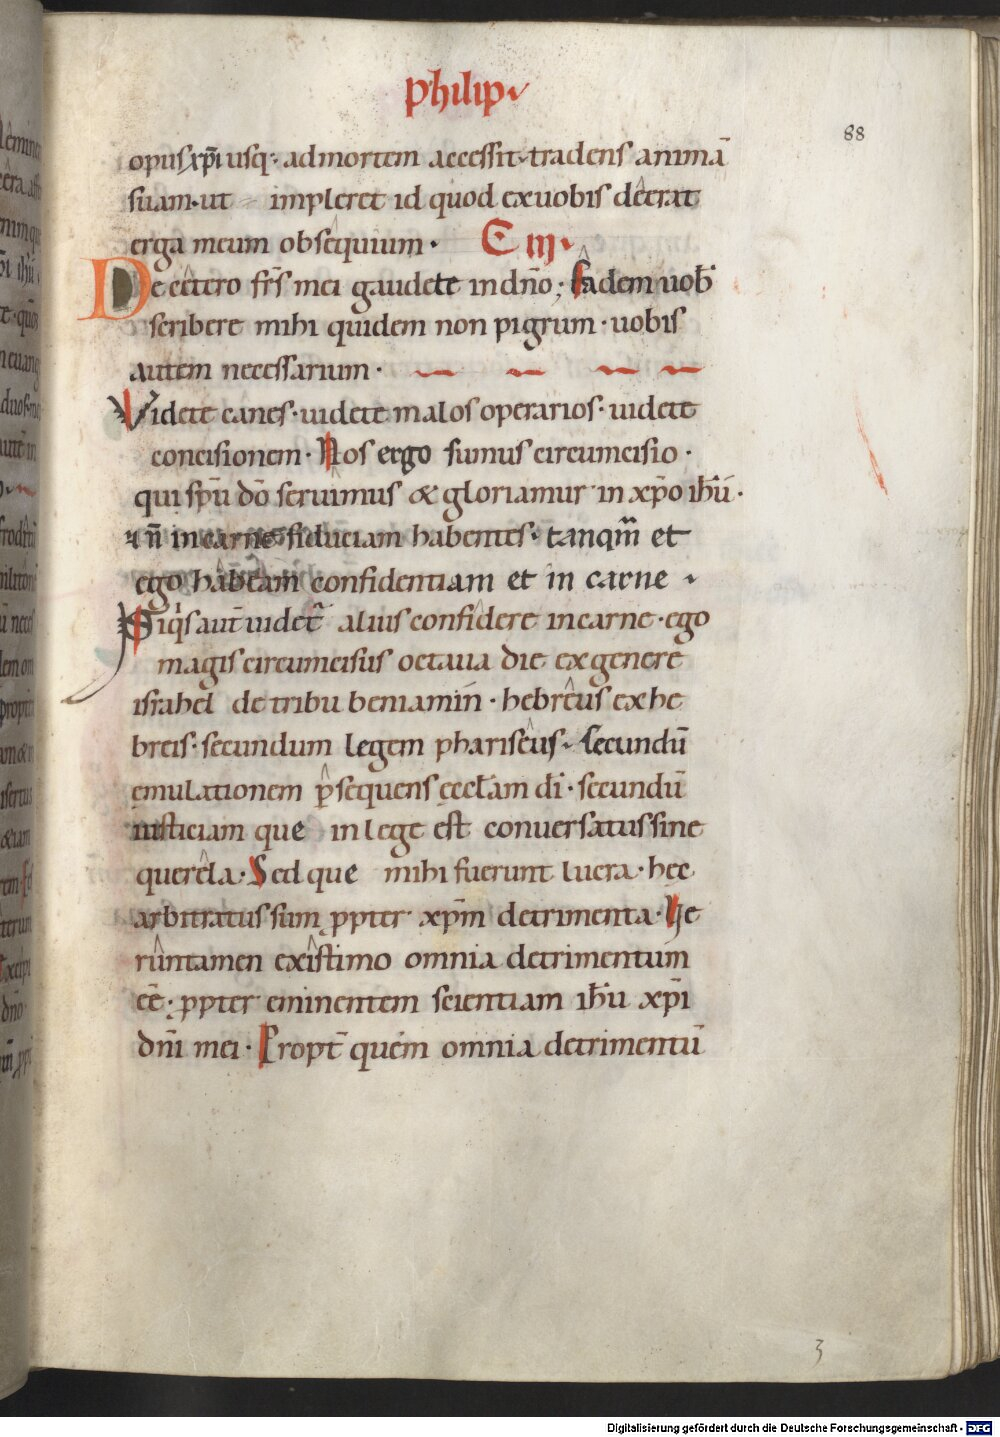 philip
88
opus xp̄i usq; ad mortem accessit tradens animā
suam· ut impleret id quod ex uobis deerat
erga meum obsequium · C iij·
De cetero fr̄s mei gaudete in dn̄o; Eadem uob̄
scribere mihi quidem non pigrum · uobis
autem necessarium ·
Videte canes · uidete malos operarios · uidete
concisionem · Nos ergo sumus circumcisio ·
qui sp̄u dō seruimus & gloriamur in xp̄o ih̄u ·
& n̄ in carne fiduciam habentes · tanqm̄ et
ego habeam confidentiam et in carne
Si q̇s aut̄ uidet̄ alius confidere in carne · ego
magis circumcisus octaua die ex genere
israhel de tribu beniamin · hebreus ex he
breis · secundum legem phariseus · secundū
emulationem p̄sequens eccl̄am dī · secundū
iusticiam que in lege est conuersatus sine
querela · Sed que mihi fuerunt lucra · hec
arbitratus sum ꝓpter xp̄m detrimenta · Ue
runtamen existimo omnia detrimentum
eē · ꝓpter eminentem scientiam ih̄u xp̄i
dn̄i mei · Propt̄ quem omnia detrimentū
3
Digitalisierung gefördert durch die Deutsche Forschungsgemeinschaft - DFG